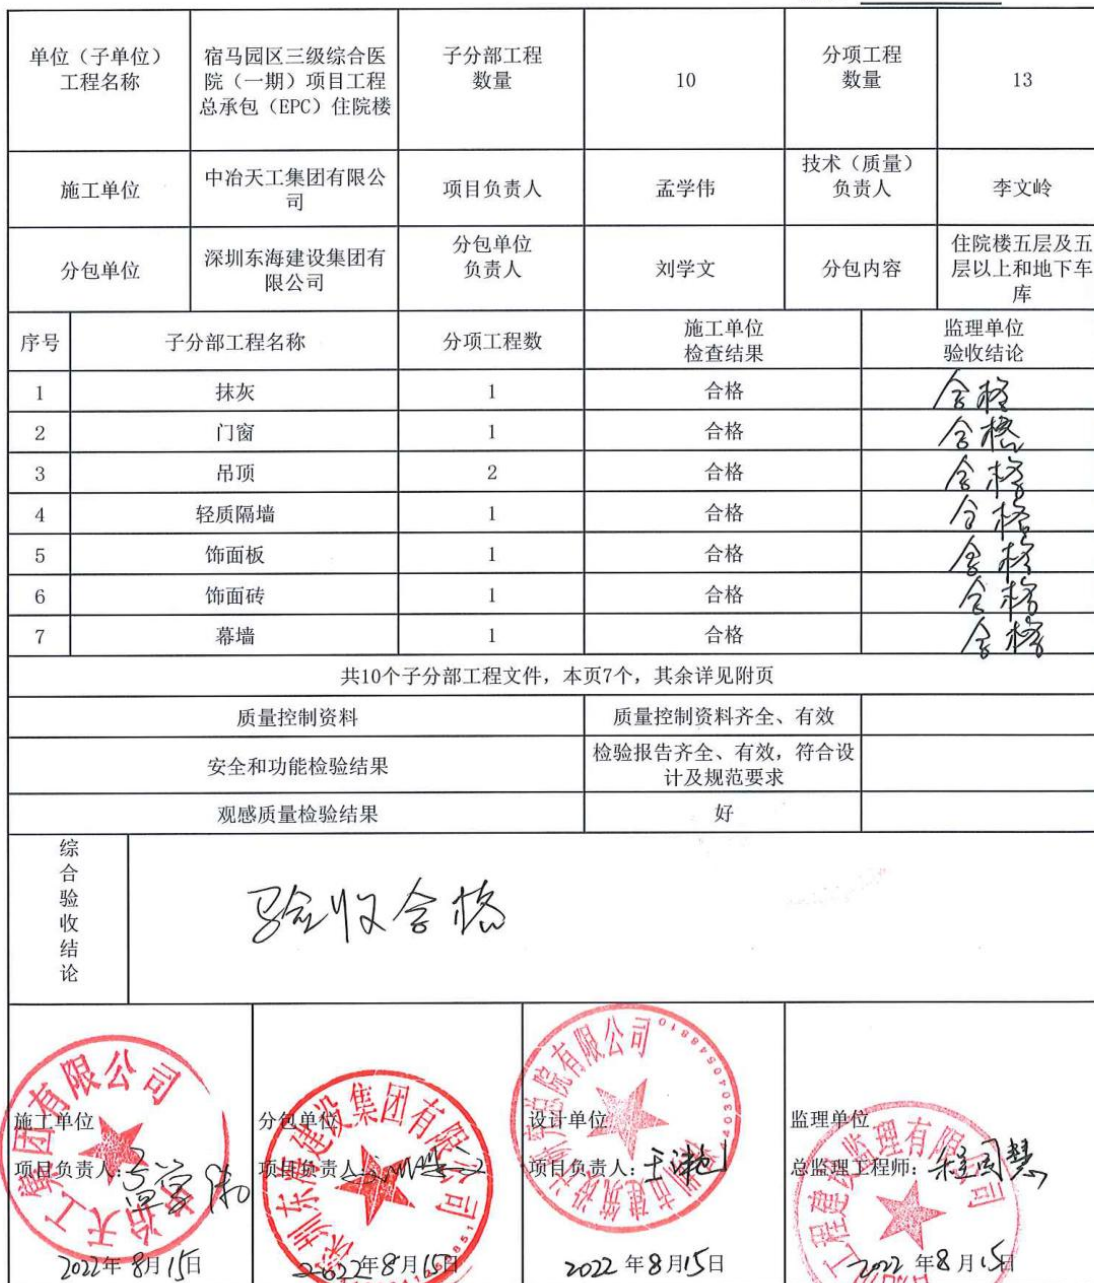 单位（子单位）
工程名称
宿马园区三级综合医
院（一期）项目工程
总承包（EPC）住院楼
子分部工程
数量
10
分项工程
数量
13
施工单位
中冶天工集团有限公
司
项目负责人
孟学伟
技术（质量）
负责人
李文岭
分包单位
深圳东海建设集团有
限公司
分包单位
负责人
刘学文
分包内容
住院楼五层及五
层以上和地下车
库
序号
子分部工程名称
分项工程数
施工单位
检查结果
监理单位
验收结论
1 抹灰 1 合格 合格
2 门窗 1 合格 合格
3 吊顶 2 合格 合格
4 轻质隔墙 1 合格 合格
5 饰面板 1 合格 合格
6 饰面砖 1 合格 合格
7 幕墙 1 合格 合格
共10个子分部工程文件，本页7个，其余详见附页
质量控制资料
质量控制资料齐全、有效
安全和功能检验结果
检验报告齐全、有效，符合设
计及规范要求
观感质量检验结果
好
综合验收结论
验收合格
施工单位
项目负责人：孟学伟
2022年8月15日
天工集团有限公司
分包单位
项目负责人：
2022年8月15日
深圳东海建设集团有限公司
设计单位
项目负责人：
2022年8月15日
建筑设计研究总院有限公司
监理单位
总监理工程师：
2022年8月15日
工程建设监理有限公司